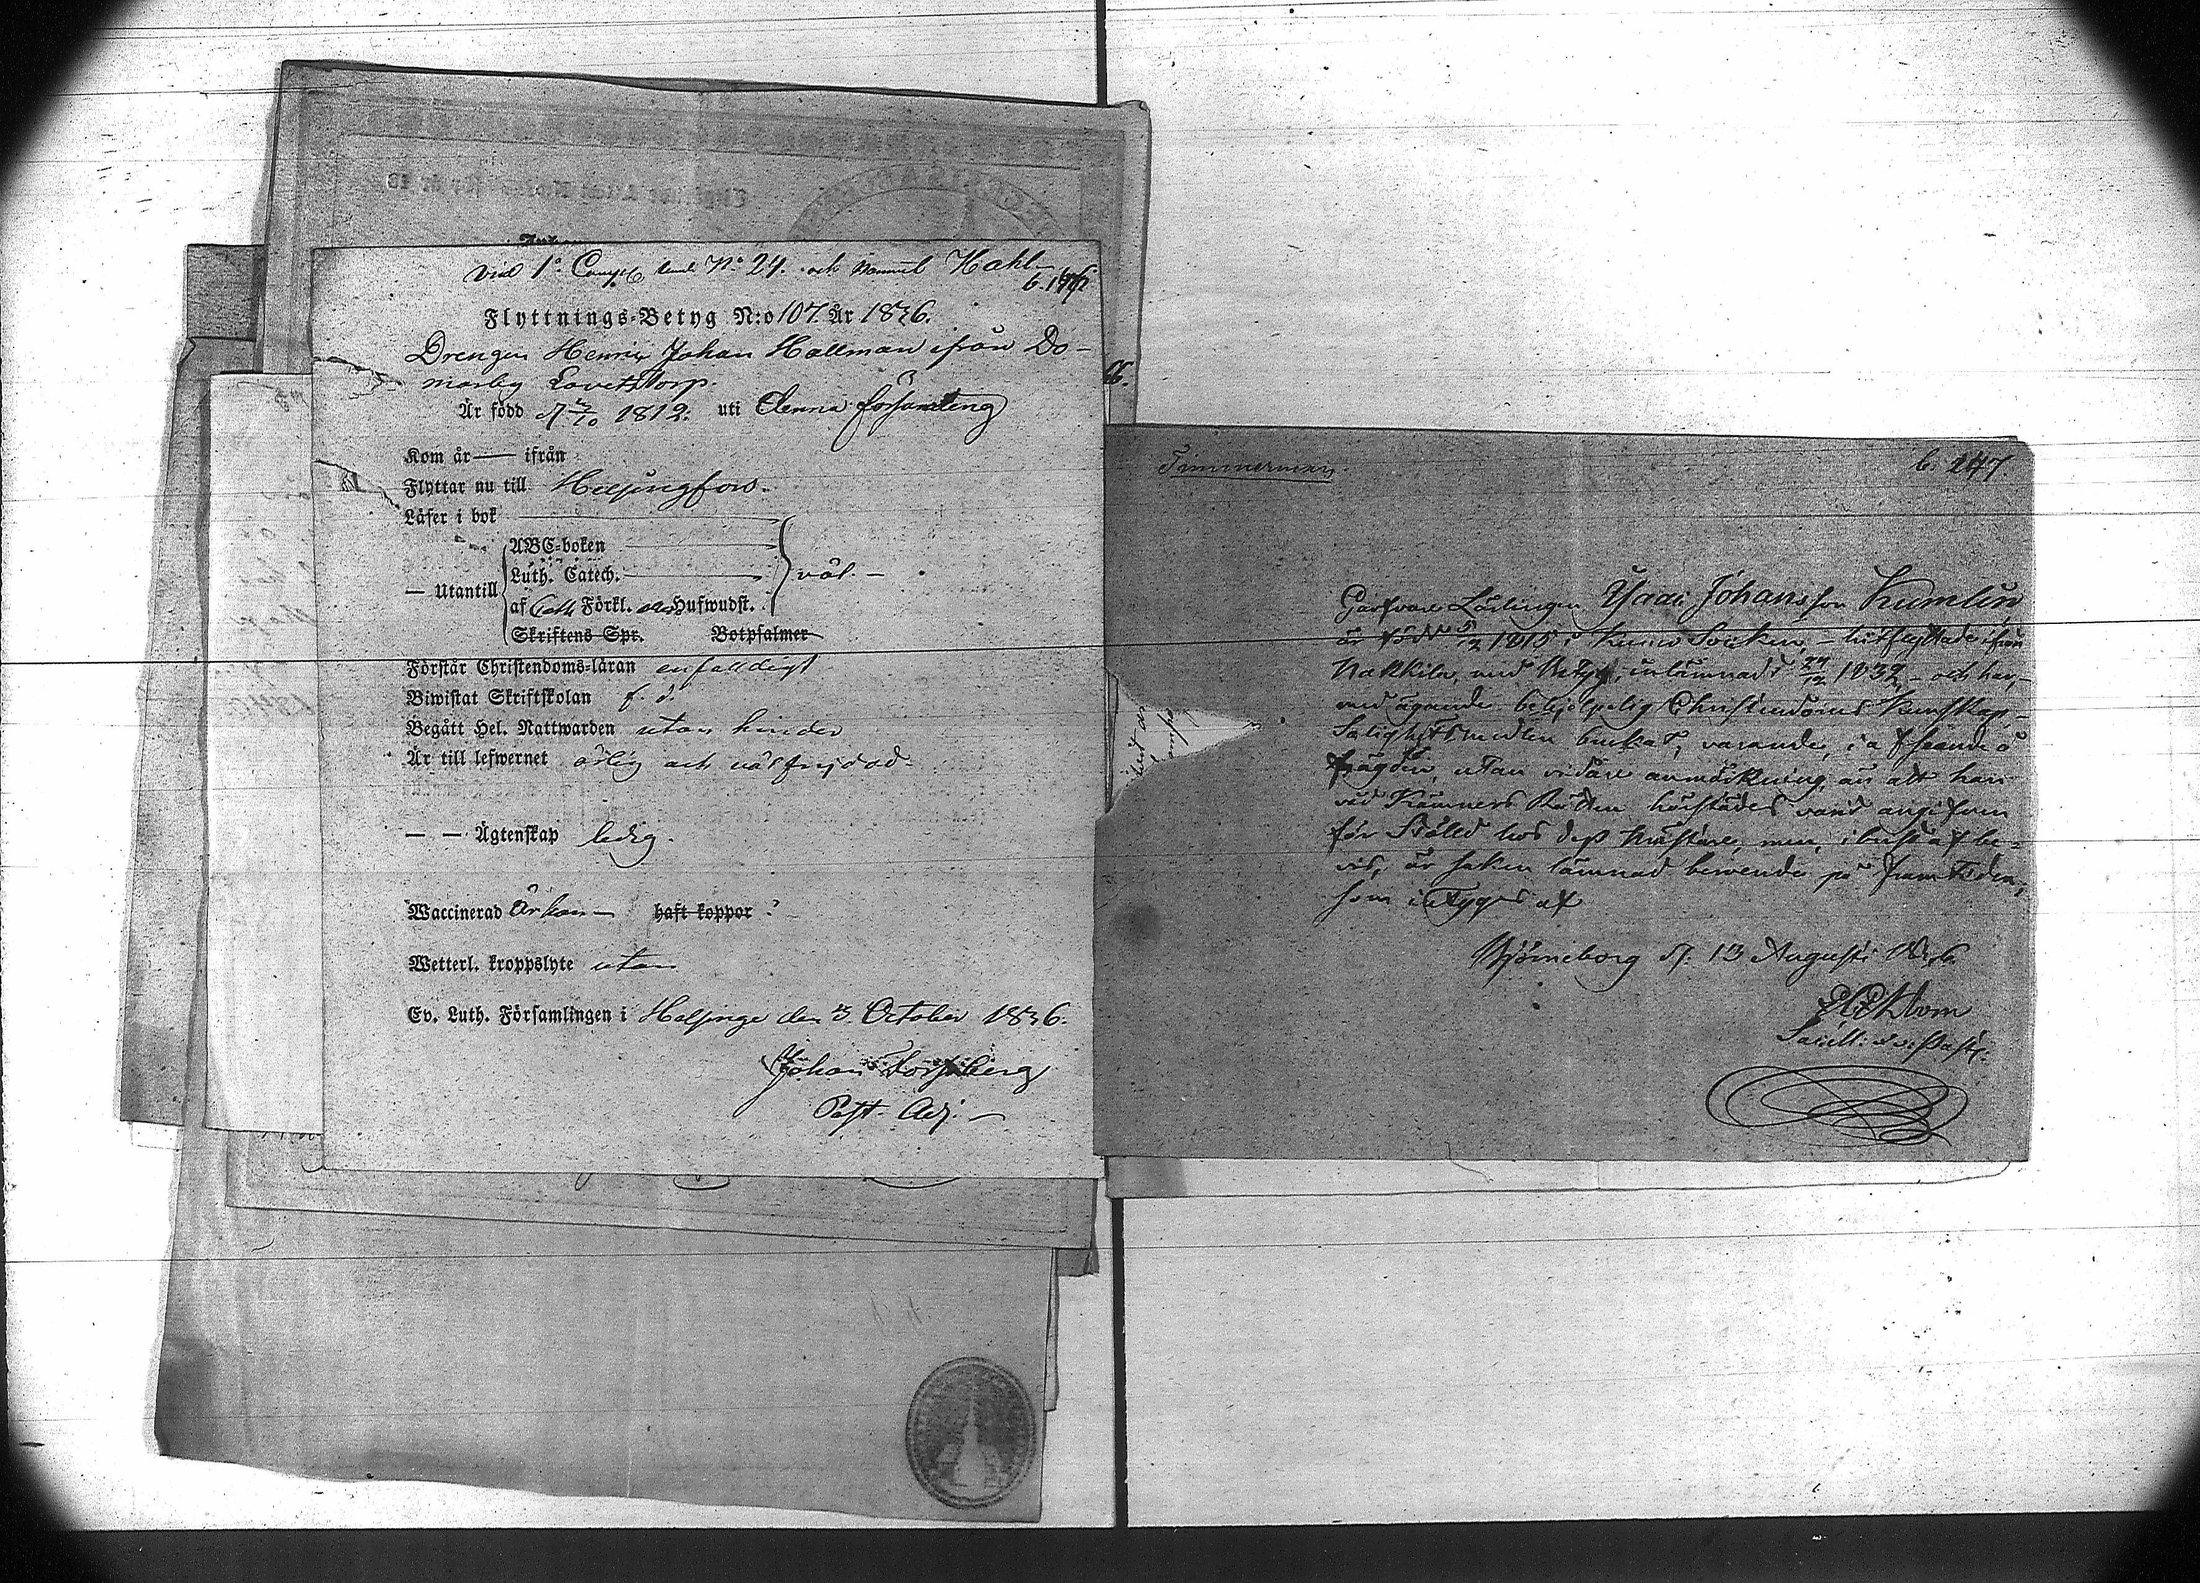 vid 1:o Comp. och N:o 24. och Namnet Hahl-
Flyttnings-Betyg N:o 107. År 1836.
Drengen Henric Johan Hallman ifrån Do-
marby Lovetstorp.
Är född d. 1812. uti denna församling
Kom år — ifrån
Flyttar nu till Helsingfors.
Läser i bok
ABC-boken
Luth. Catech. väl. —
— Utantill
af Förkl. Hufwudst.
Skriftens Spr. Botpsalmer
Förstår Christendoms-läran enfaldigt
Biwistat Skriftskolan f. d.
Begått Hel. Nattwarden utan hinder
Är till lefwernet ärlig och väl frejdad.
— — Ägtenskap ledig.
Waccinerad är han — haft koppor
Wetterl. kroppslyte utan
Ev. Luth. Församlingen i Helsinge den 3. October 1836.
Johan Forssberg
Past. Adj. —
Timmerman.
6. 247
Garfvare Lärlingen Isaac Johansson Kumlin
är född 1815 i Kumo Socken, — hitflyttade ifrån
Nakkila, med Betyg, inlämnadt 24/12 1832, — och har,
med ägande behjelpelig Christendoms Kunskap,
Salighetsmedlen brukat, varande, i afseende å
frägden, utan vidare anmärkning, än att han
vid Kämners Rätten härstädes varit angifven
för Stöld hos dess Mästare, men, i brist af be-
vis, är saken lämnad beroende på framtiden,
som intygas af
Björneborg d. 13 Augusti 1836.